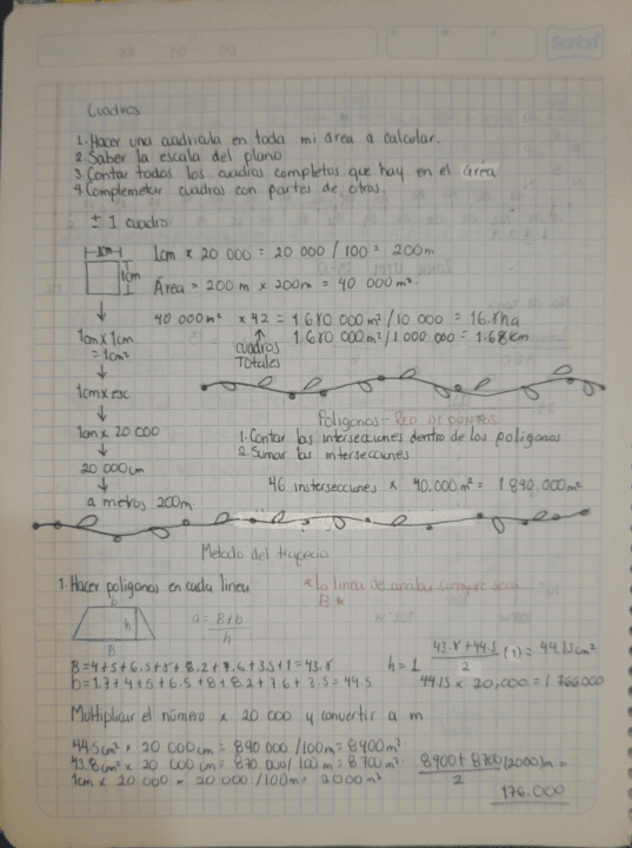 Scribe
Cuadros
1. Hacer una cuadricula en toda mi área a calcular.
2. Saber la escala del plano
3. Contar todos los cuadros completos que hay en el área
4. Complemetar cuadros con partes de otros.
± 1 cuadro
1cm
1cm
1cm x 20 000 = 20 000 / 100 = 200m
Área = 200 m x 200m = 40 000 m².
40 000 m² x 42 = 1 680 000 m² / 10 000 = 16.8ha
↑ 1 680 000 m² / 1 000 000 = 1.68km
cuadros
Totales
↓
1cm x 1cm
= 1cm²
↓
1cm x esc
↓
1cm x 20 000
↓
20 000 cm
↓
a metros 200m
Poligonos - RED DE PUNTOS
1. Contar las intersecciones dentro de los poligonos
2. Sumar las intersecciones
46 instersecciones x 40.000 m² = 1 840.000 m²
Metodo del trapecio
1. Hacer poligonos en cada linea
*La linea de
B *
b
h
B
a = B+b
h
B = 4+5+6.5+8+8.2+7.6+3.5+1 = 43.8
b = 1.7+4+5+6.5+8+8.2+7.6+3.5 = 44.5
h = 1
43.8 + 44.5 (1) = 44.15 cm²
2
44.15 x 20,000 = 1 766000
Multiplicar el número x 20 000 y convertir a m
44.5cm² x 20 000 cm = 890 000 /100m = 8900 m².
43.8cm² x 20 000 cm = 870 000 / 100 m = 8 700 m².
1cm x 20 000 = 20 000 /100m = 2000 m²
8900 + 8700 (2000)m =
2
176.000